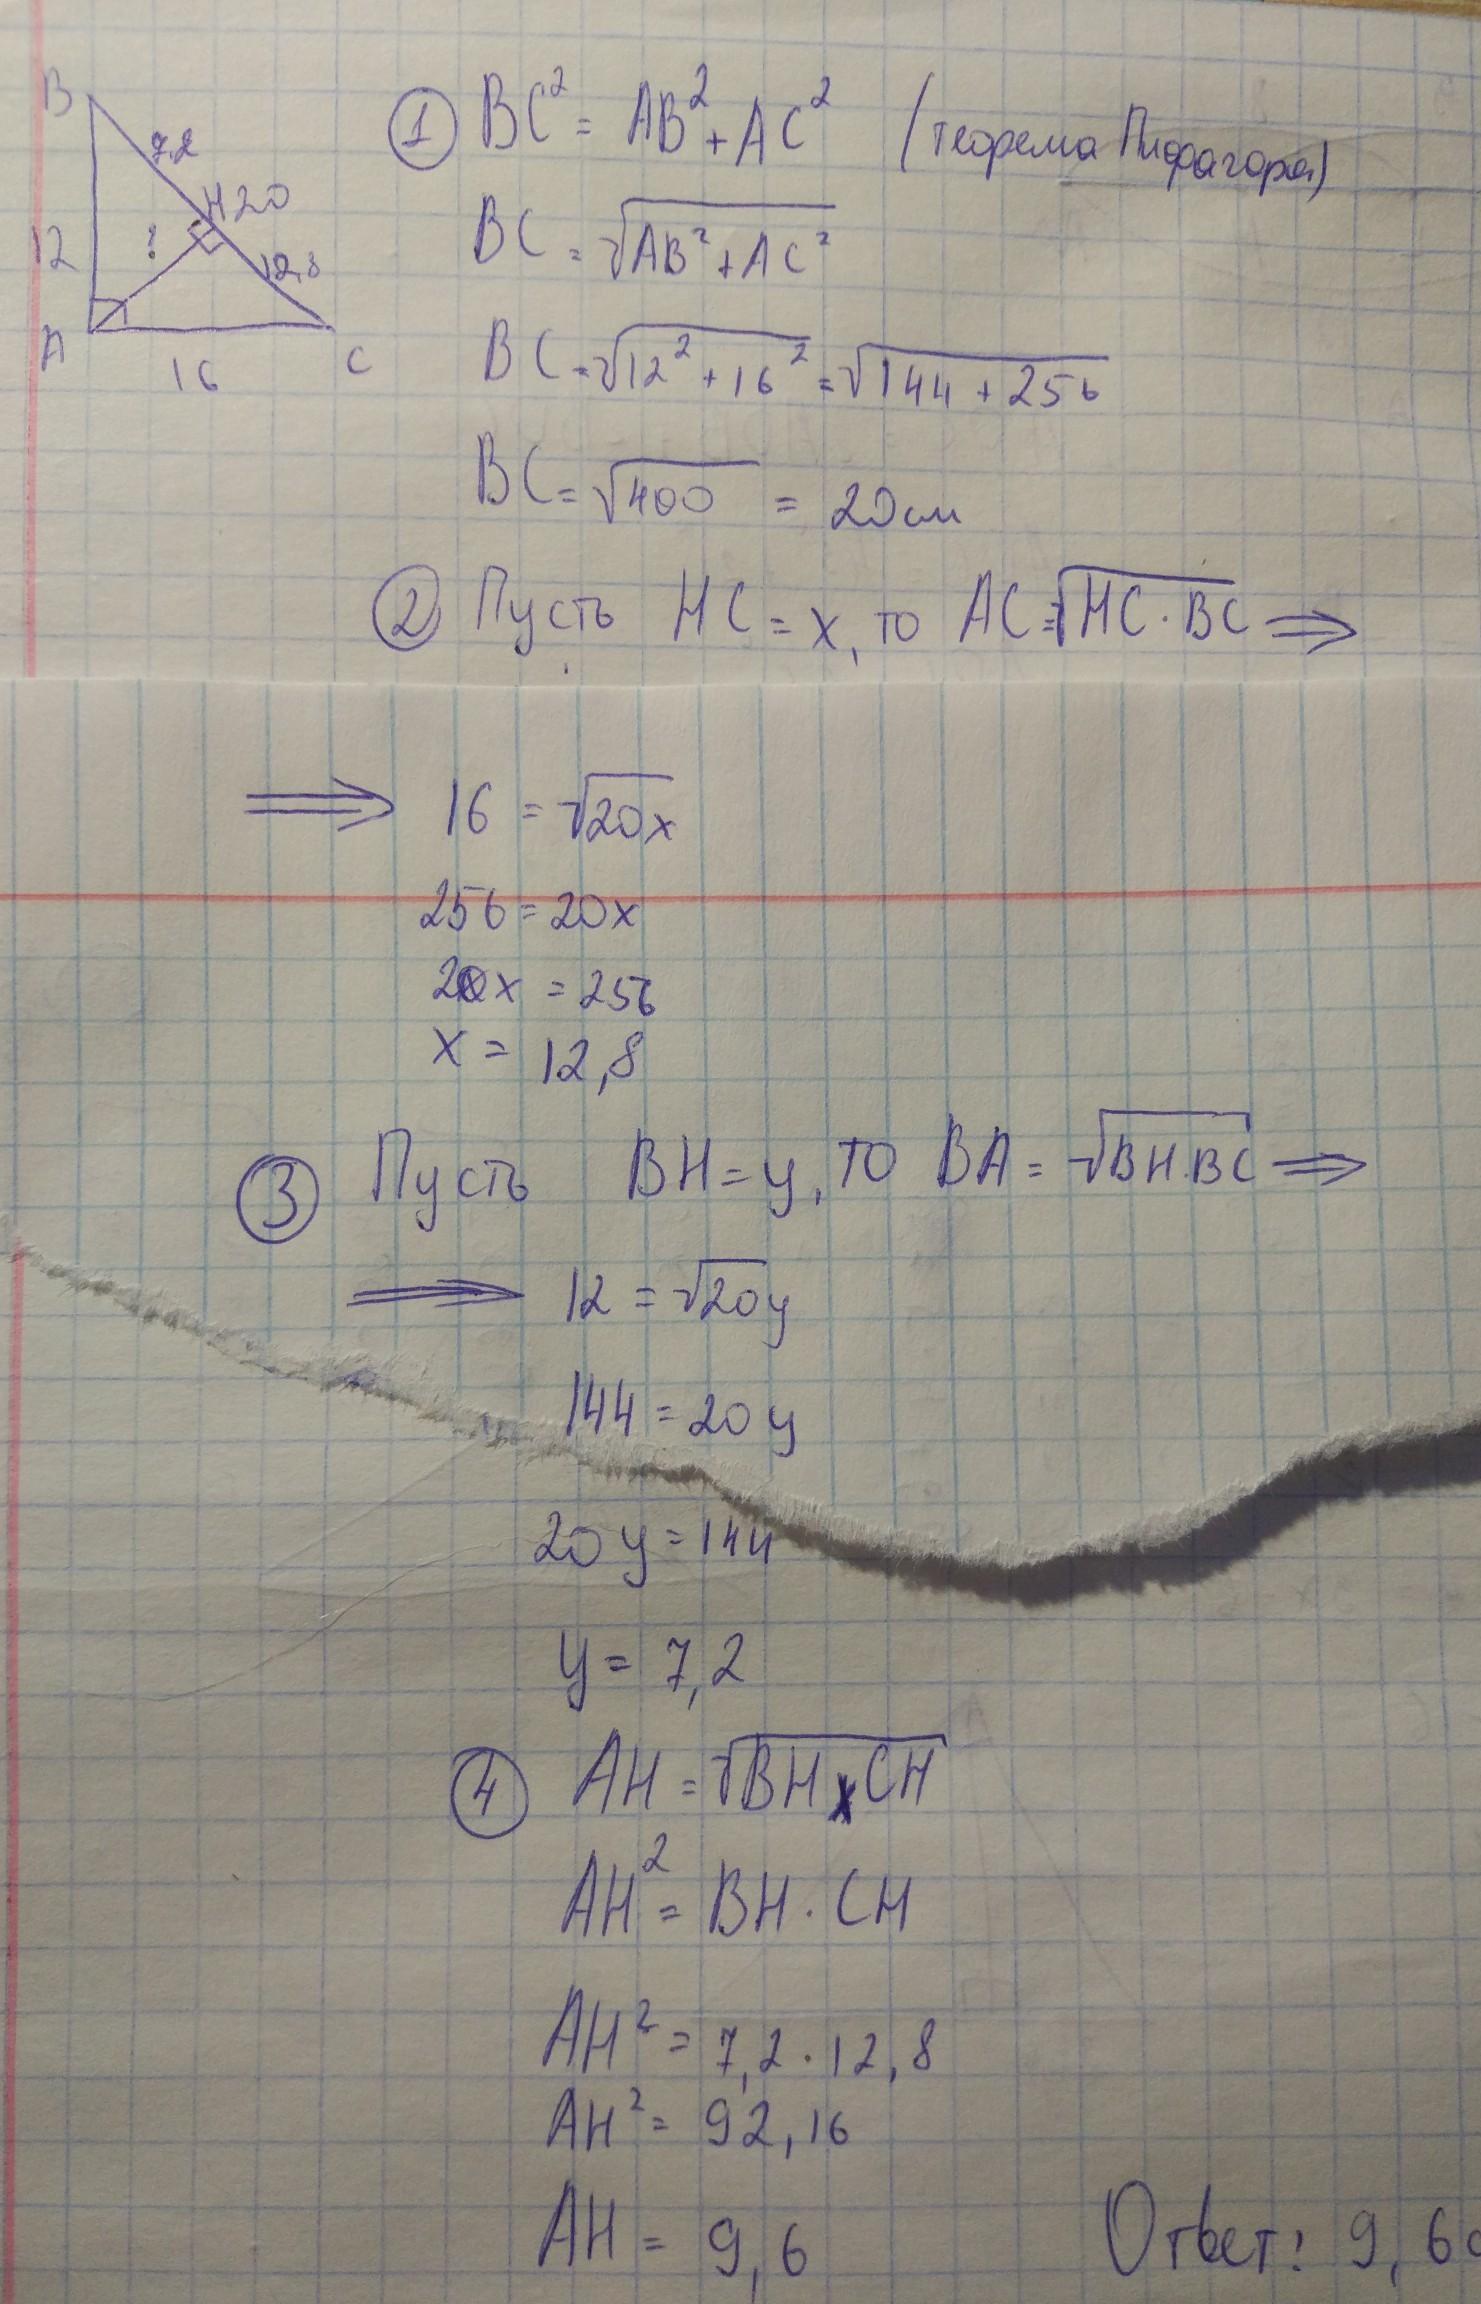 B
7,2
H 20
12
?
12,8
A
16
C
① BC² = AB² + AC² (теорема Пифагора)
BC = √AB² + AC²
BC = √12² + 16² = √144 + 256
BC = √400 = 20см
② Пусть HC = x, то AC = √HC · BC ⇒
⇒ 16 = √20x
256 = 20x
20x = 256
x = 12,8
③ Пусть BH = y, то BA = √BH · BC ⇒
⇒ 12 = √20y
144 = 20y
20y = 144
y = 7,2
④ AH = √BH · CH
AH² = BH · CH
AH² = 7,2 · 12,8
AH² = 92,16
AH = 9,6
Ответ: 9,6с